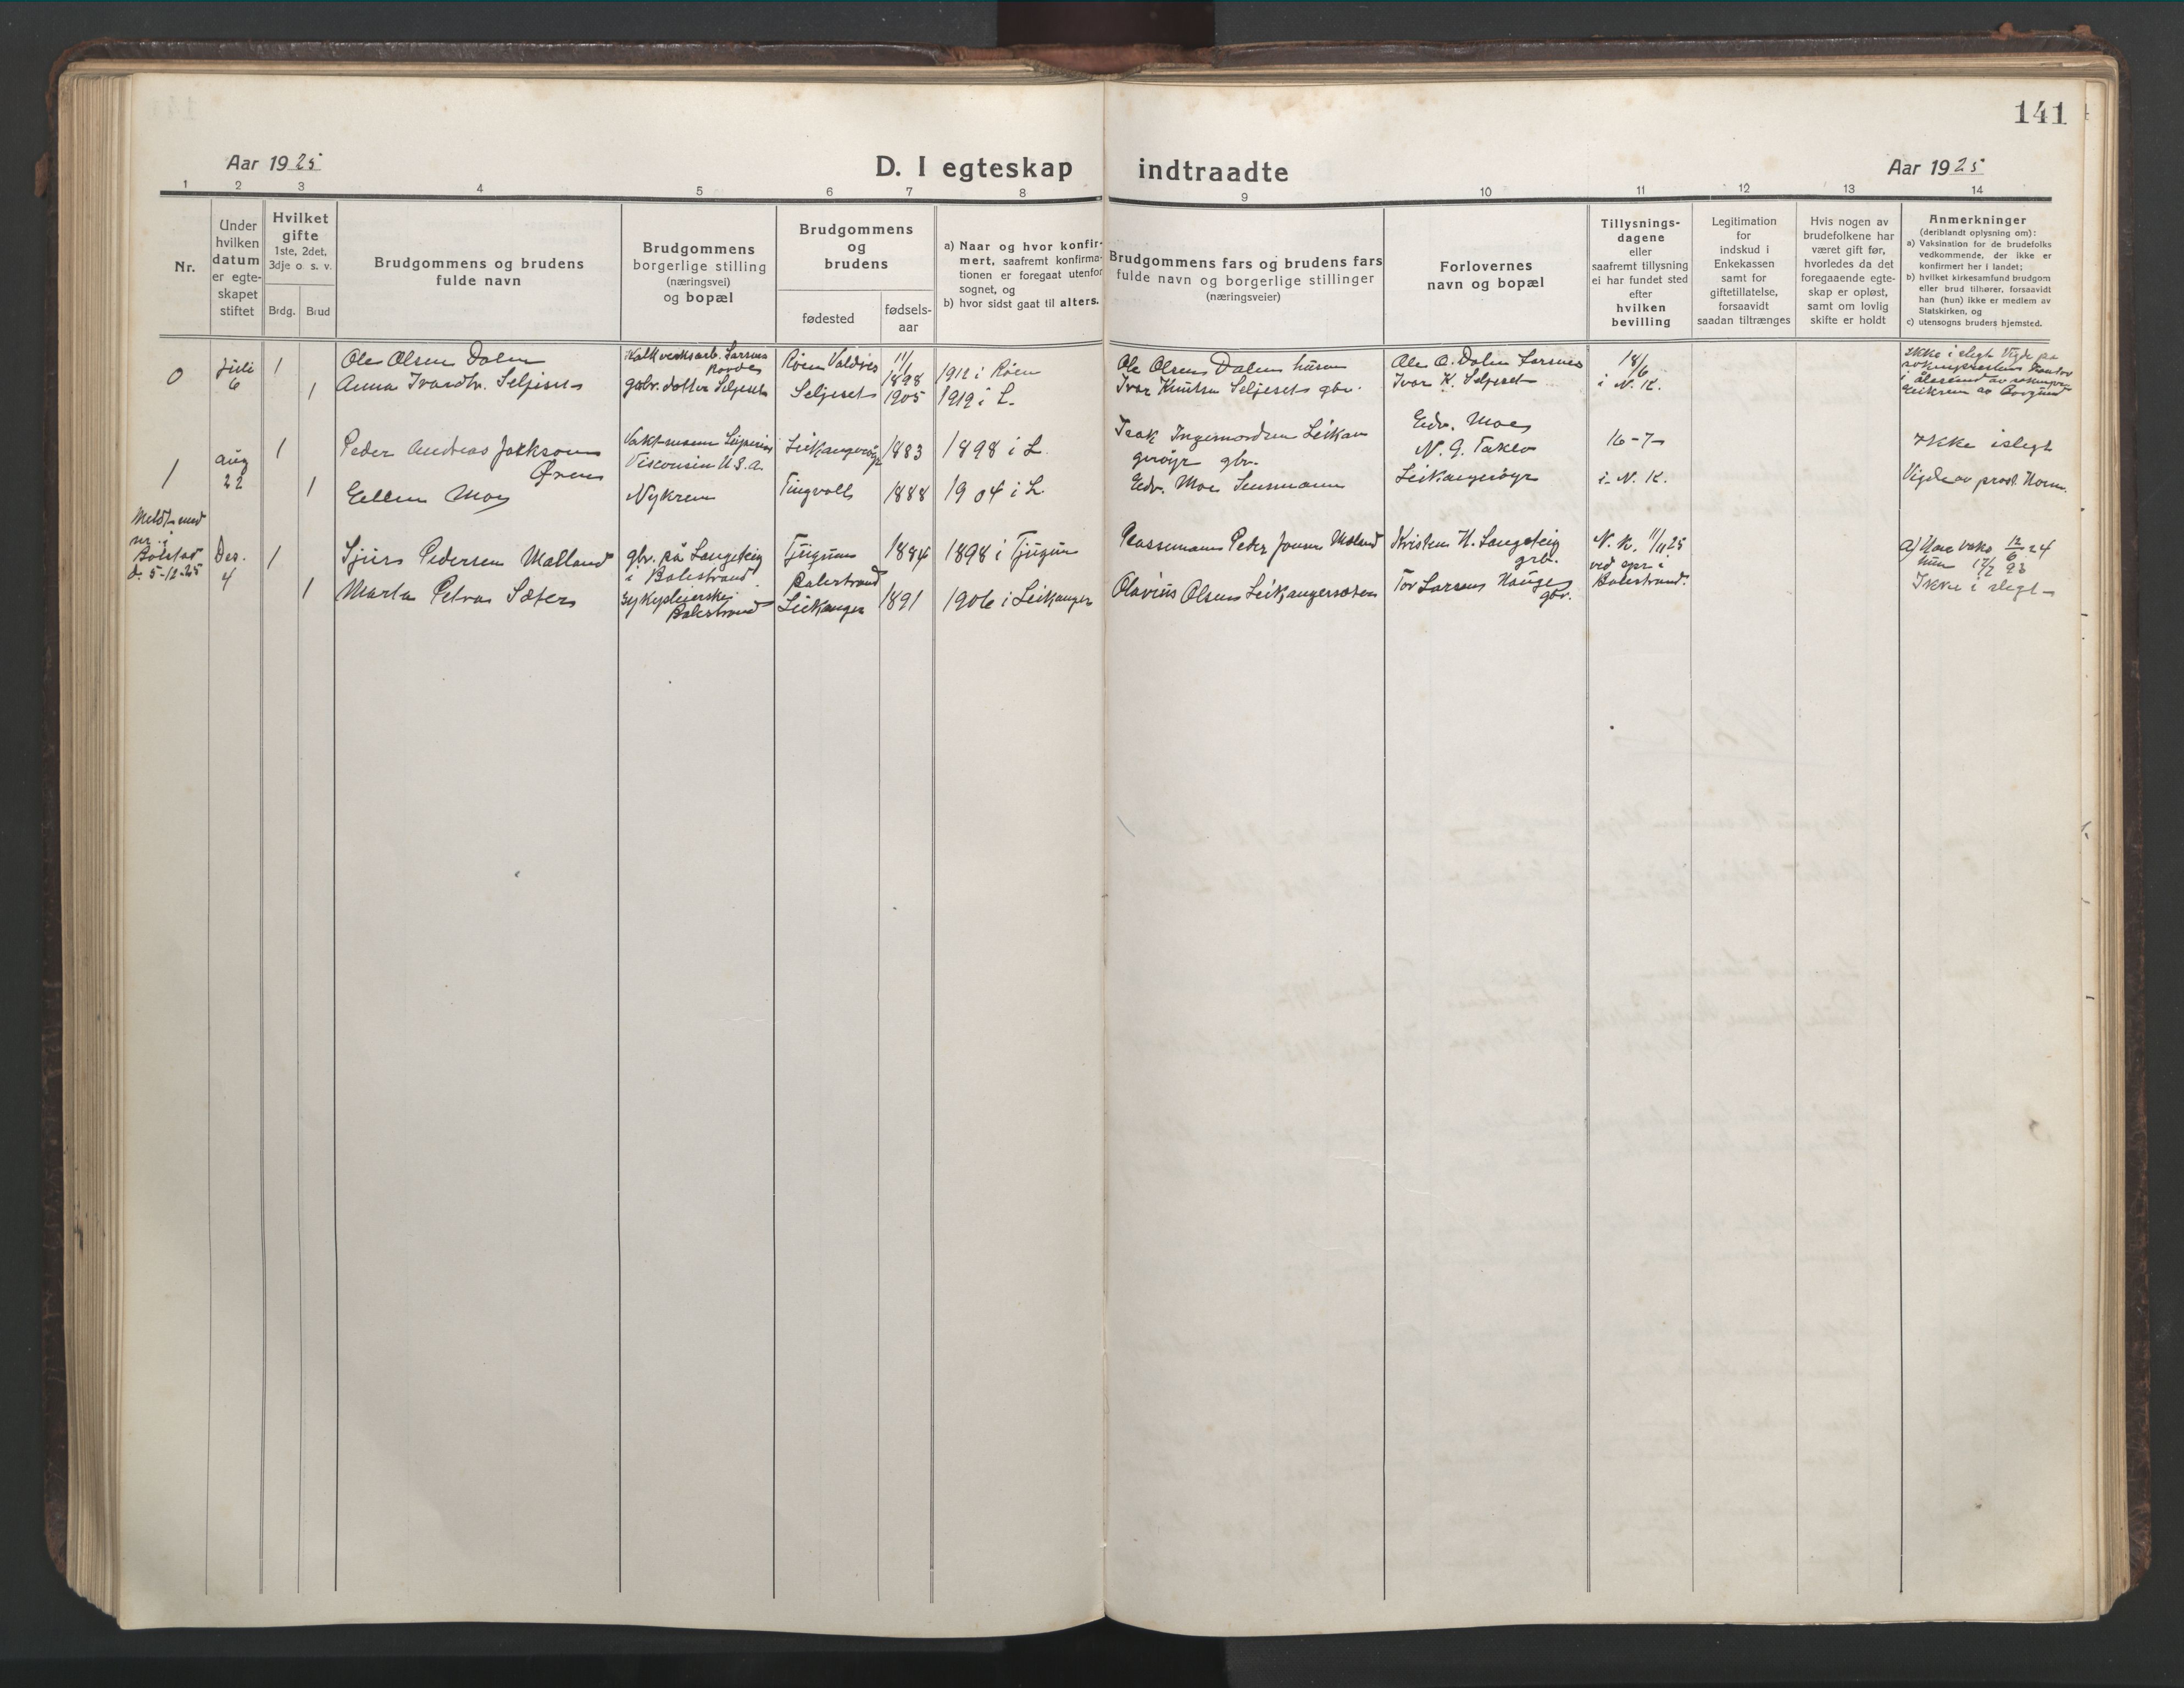 141
Aar 1925
D. I egteskap indtraadte
Aar 1925
1 2 3 4 5 6 7 8 9 10 11 12 13 14
Nr.
Under
hvilken
datum
er egte-
skapet
stiftet
Hvilket
gifte
1ste, 2det,
3dje o. s. v.
Brdg. Brud
Brudgommens og brudens
fulde navn
Brudgommens
borgerlige stilling
(næringsvei)
og bopæl
Brudgommens
og
brudens
fødested
fødsels-
aar
a) Naar og hvor konfir-
mert, saafremt konfirma-
tionen er foregaat utenfor
sognet, og
b) hvor sidst gaat til alters.
Brudgommens fars og brudens fars
fulde navn og borgerlige stillinger
(næringsveier)
Forlovernes
navn og bopæl
Tillysnings-
dagene
eller
saafremt tillysning
ei har fundet sted
efter
hvilken
bevilling
Legitimation
for
indskud i
Enkekassen
samt for
giftetillatelse,
forsaavidt
saadan tiltrænges
Hvis nogen av
brudefolkene har
været gift før,
hvorledes da det
foregaaende egte-
skap er opløst,
samt om lovlig
skifte er holdt
Anmerkninger
(deriblandt oplysning om):
a) Vaksination for de brudefolks
vedkommende, der ikke er
konfirmert her i landet;
b) hvilket kirkesamfund brudgom
eller brud tilhører, forsaavidt
han (hun) ikke er medlem av
Statskirken, og
c) utensogns bruders hjemsted.
0
Juli
6
1
Ole Olsen Dalen
Kalkverksarb. Larsnes
Røen Valdres
11/1
1898
1912 i Røen
Ole Olsen Dalen husm
Ole O. Dalen Larsnes
18/6
Ikke i slegt Vigde på
1
Anna Ivarsdtr. Seljeset
gbr. dotter Seljeset
Seljeset
1905
1919 i L.
Ivar Knutsen Seljeset gbr.
Ivar K. Seljeset
i N. K.
i Ålesund av
av Borgund
1
Aug
22
1
Peder Andreas Jakksen
Øren
Visconsin U.S.A.
Leikangerøyr
1883
1898 i L.
Isak Ingemordsen Leikan
gerøyr gbr.
Edv. Moe
N. G. Taklo
16-7
Ikke i slegt
1
Ellen Moe
Nykrem
Tingvoll
1888
1904 i L.
Edv. Moe Lensmann
Leikangerøyr
i N. K.
Vigde av prost Horn.
Meldt med
nr. i
Balestad
d. 5-12-25
Des.
4
1
Sjurs Pedersen Malland
gbr. på Langeteig
i Balestrand.
Tjugum
Balestrand
1884
1898 i Tjugum
Plassmann Peder Jonsen Malland
Kristen H. Langeteig
gbr.
N. K. 11/11 25
ved spr i
Balestrand.
a) Han vaks. 12/6 24
hun 17/7 93
1
Marta Petra Sæter
Sykepleierske
Balestrand
Leikanger
1891
1906 i Leikanger
Olavius Olsen Leikangersæter
Tor Larsen Hauge
gbr.
Ikke i slegt